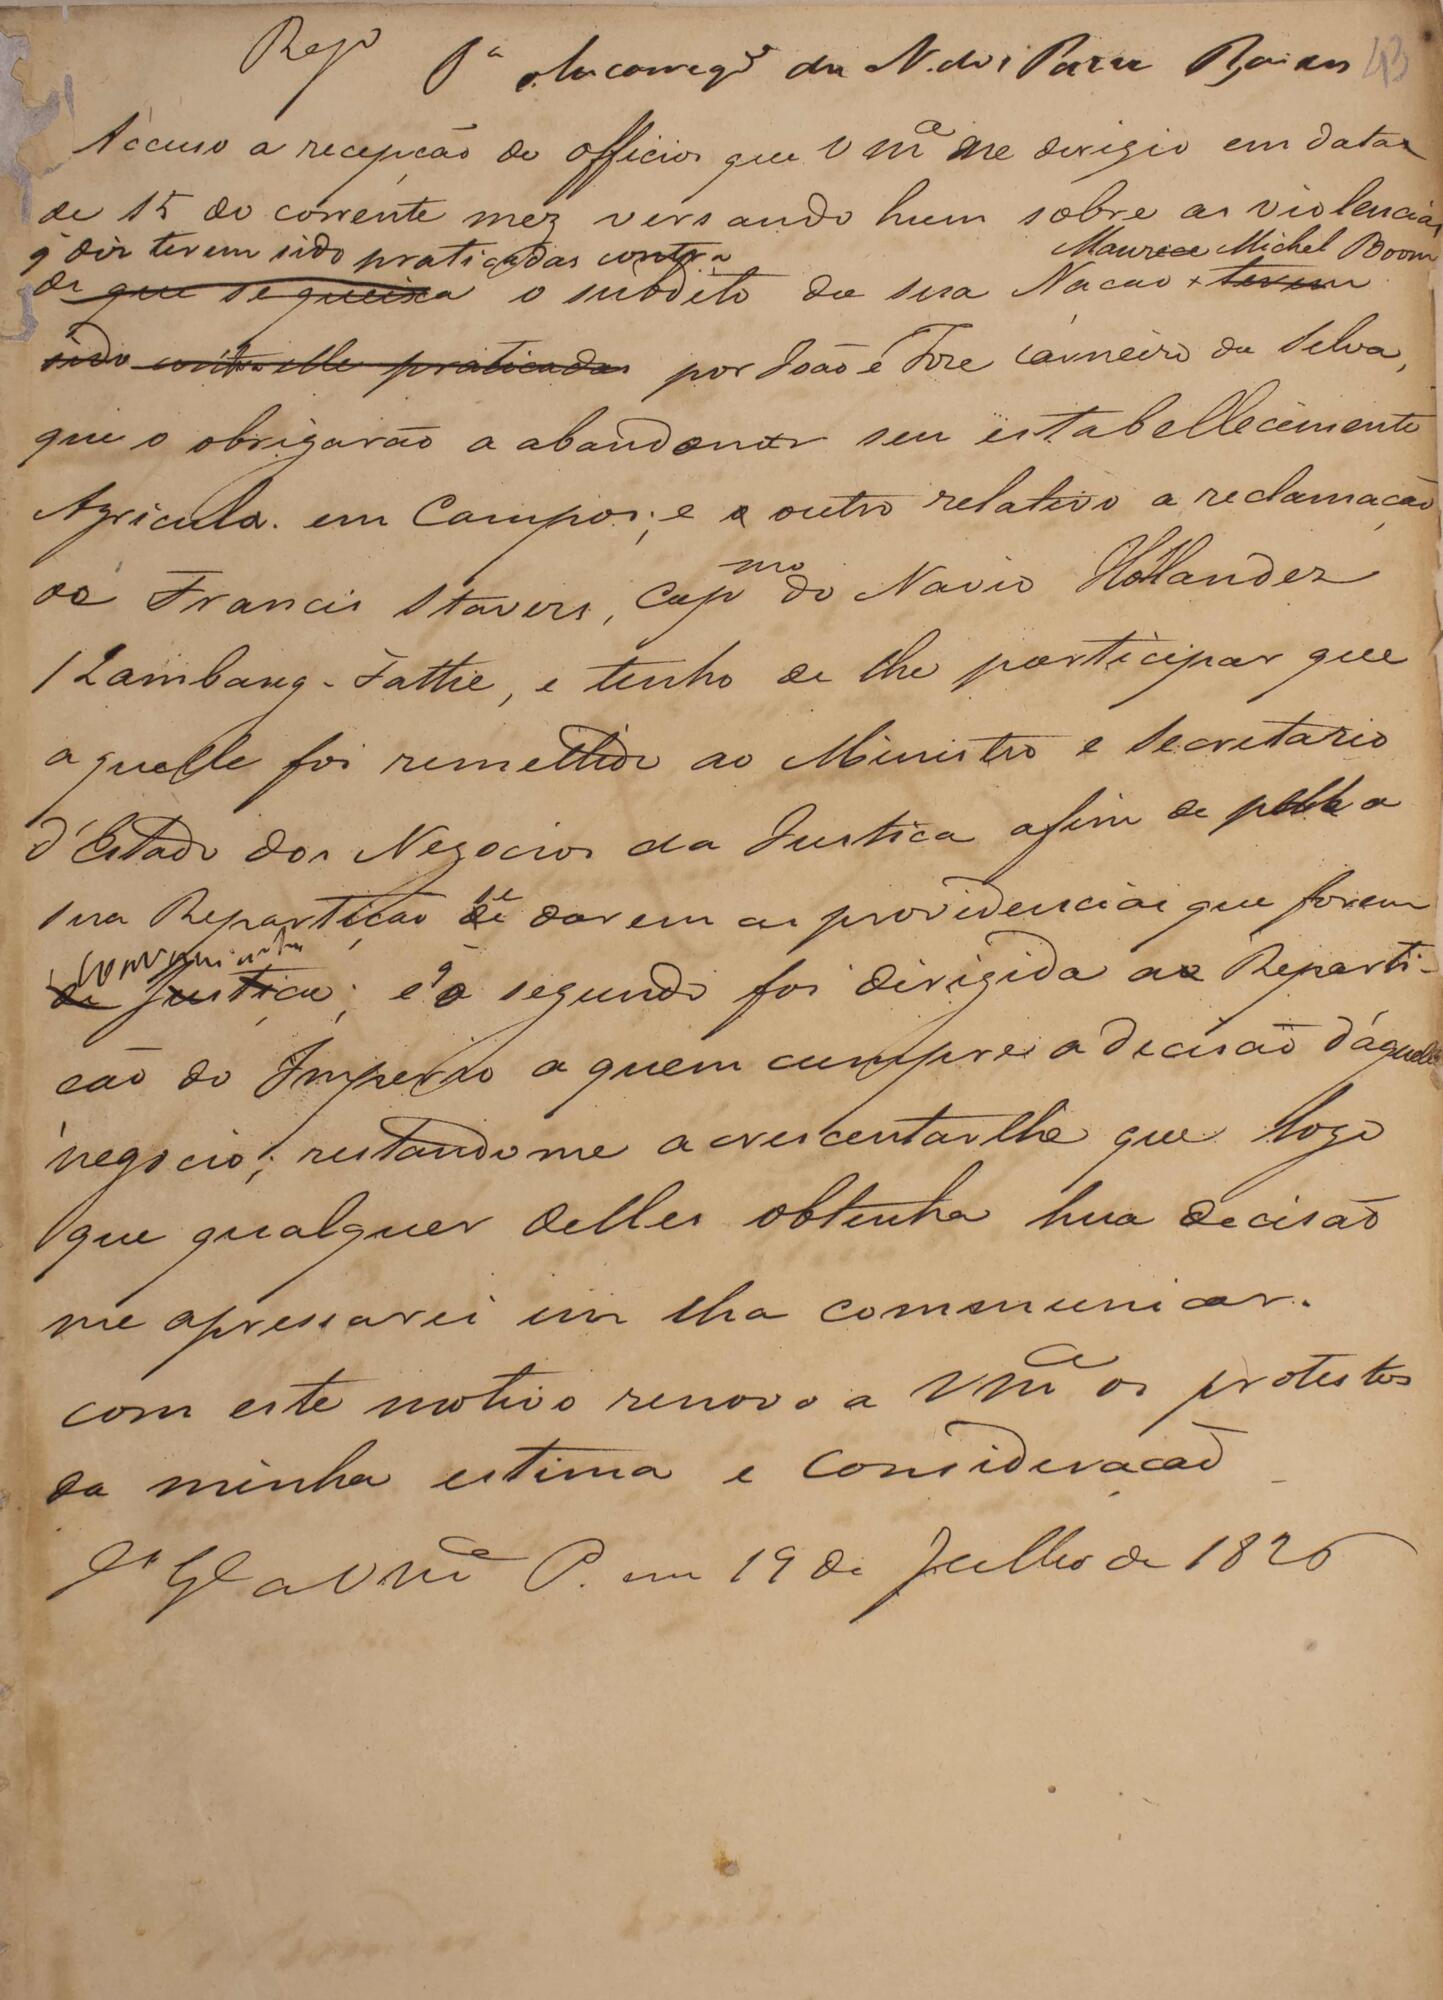 Rego Pa o Encarregdo de N. dos Paizes Baixos 43
Accuso a recepção de officios que V Mce me dirigio em data
de 15 do corrente mez versando hum sobre as violencias
q̃ diz terem sido praticadas contra Maurece Michel Boom
de que se queixa o subdito de sua Nação × terem
sido contra elle praticadas por João e Joze Carneiro da Selva,
que o obrigarão a abandonar seu estabellecimento
Agricula. em Campos; e o outro relativo a reclamação
de Francis Stavers, Capmo do Navio Hollandez
Lambang-Fattie, e tenho de lhe participar que
aquelle foi remettido ao Ministro e Secretario
d'Estado dos Negocios da Justiça afim de pella
sua Repartição se darem as providenciais que forem
convenientes
de Justiça; e q̃ o segundo foi dirigida a Reparti-
ção do Imperio a quem cumpre a decisão d'aquelle
negocio; restandome acrescentarlhe que logo
que qualquer delles obtenha hua decisão
me apressarei em lha communicar.
com este motivo renovo a VMce os protestos
da minha estima e consideração
Ds Ge a VMce P. em 19 de Julho de 1826